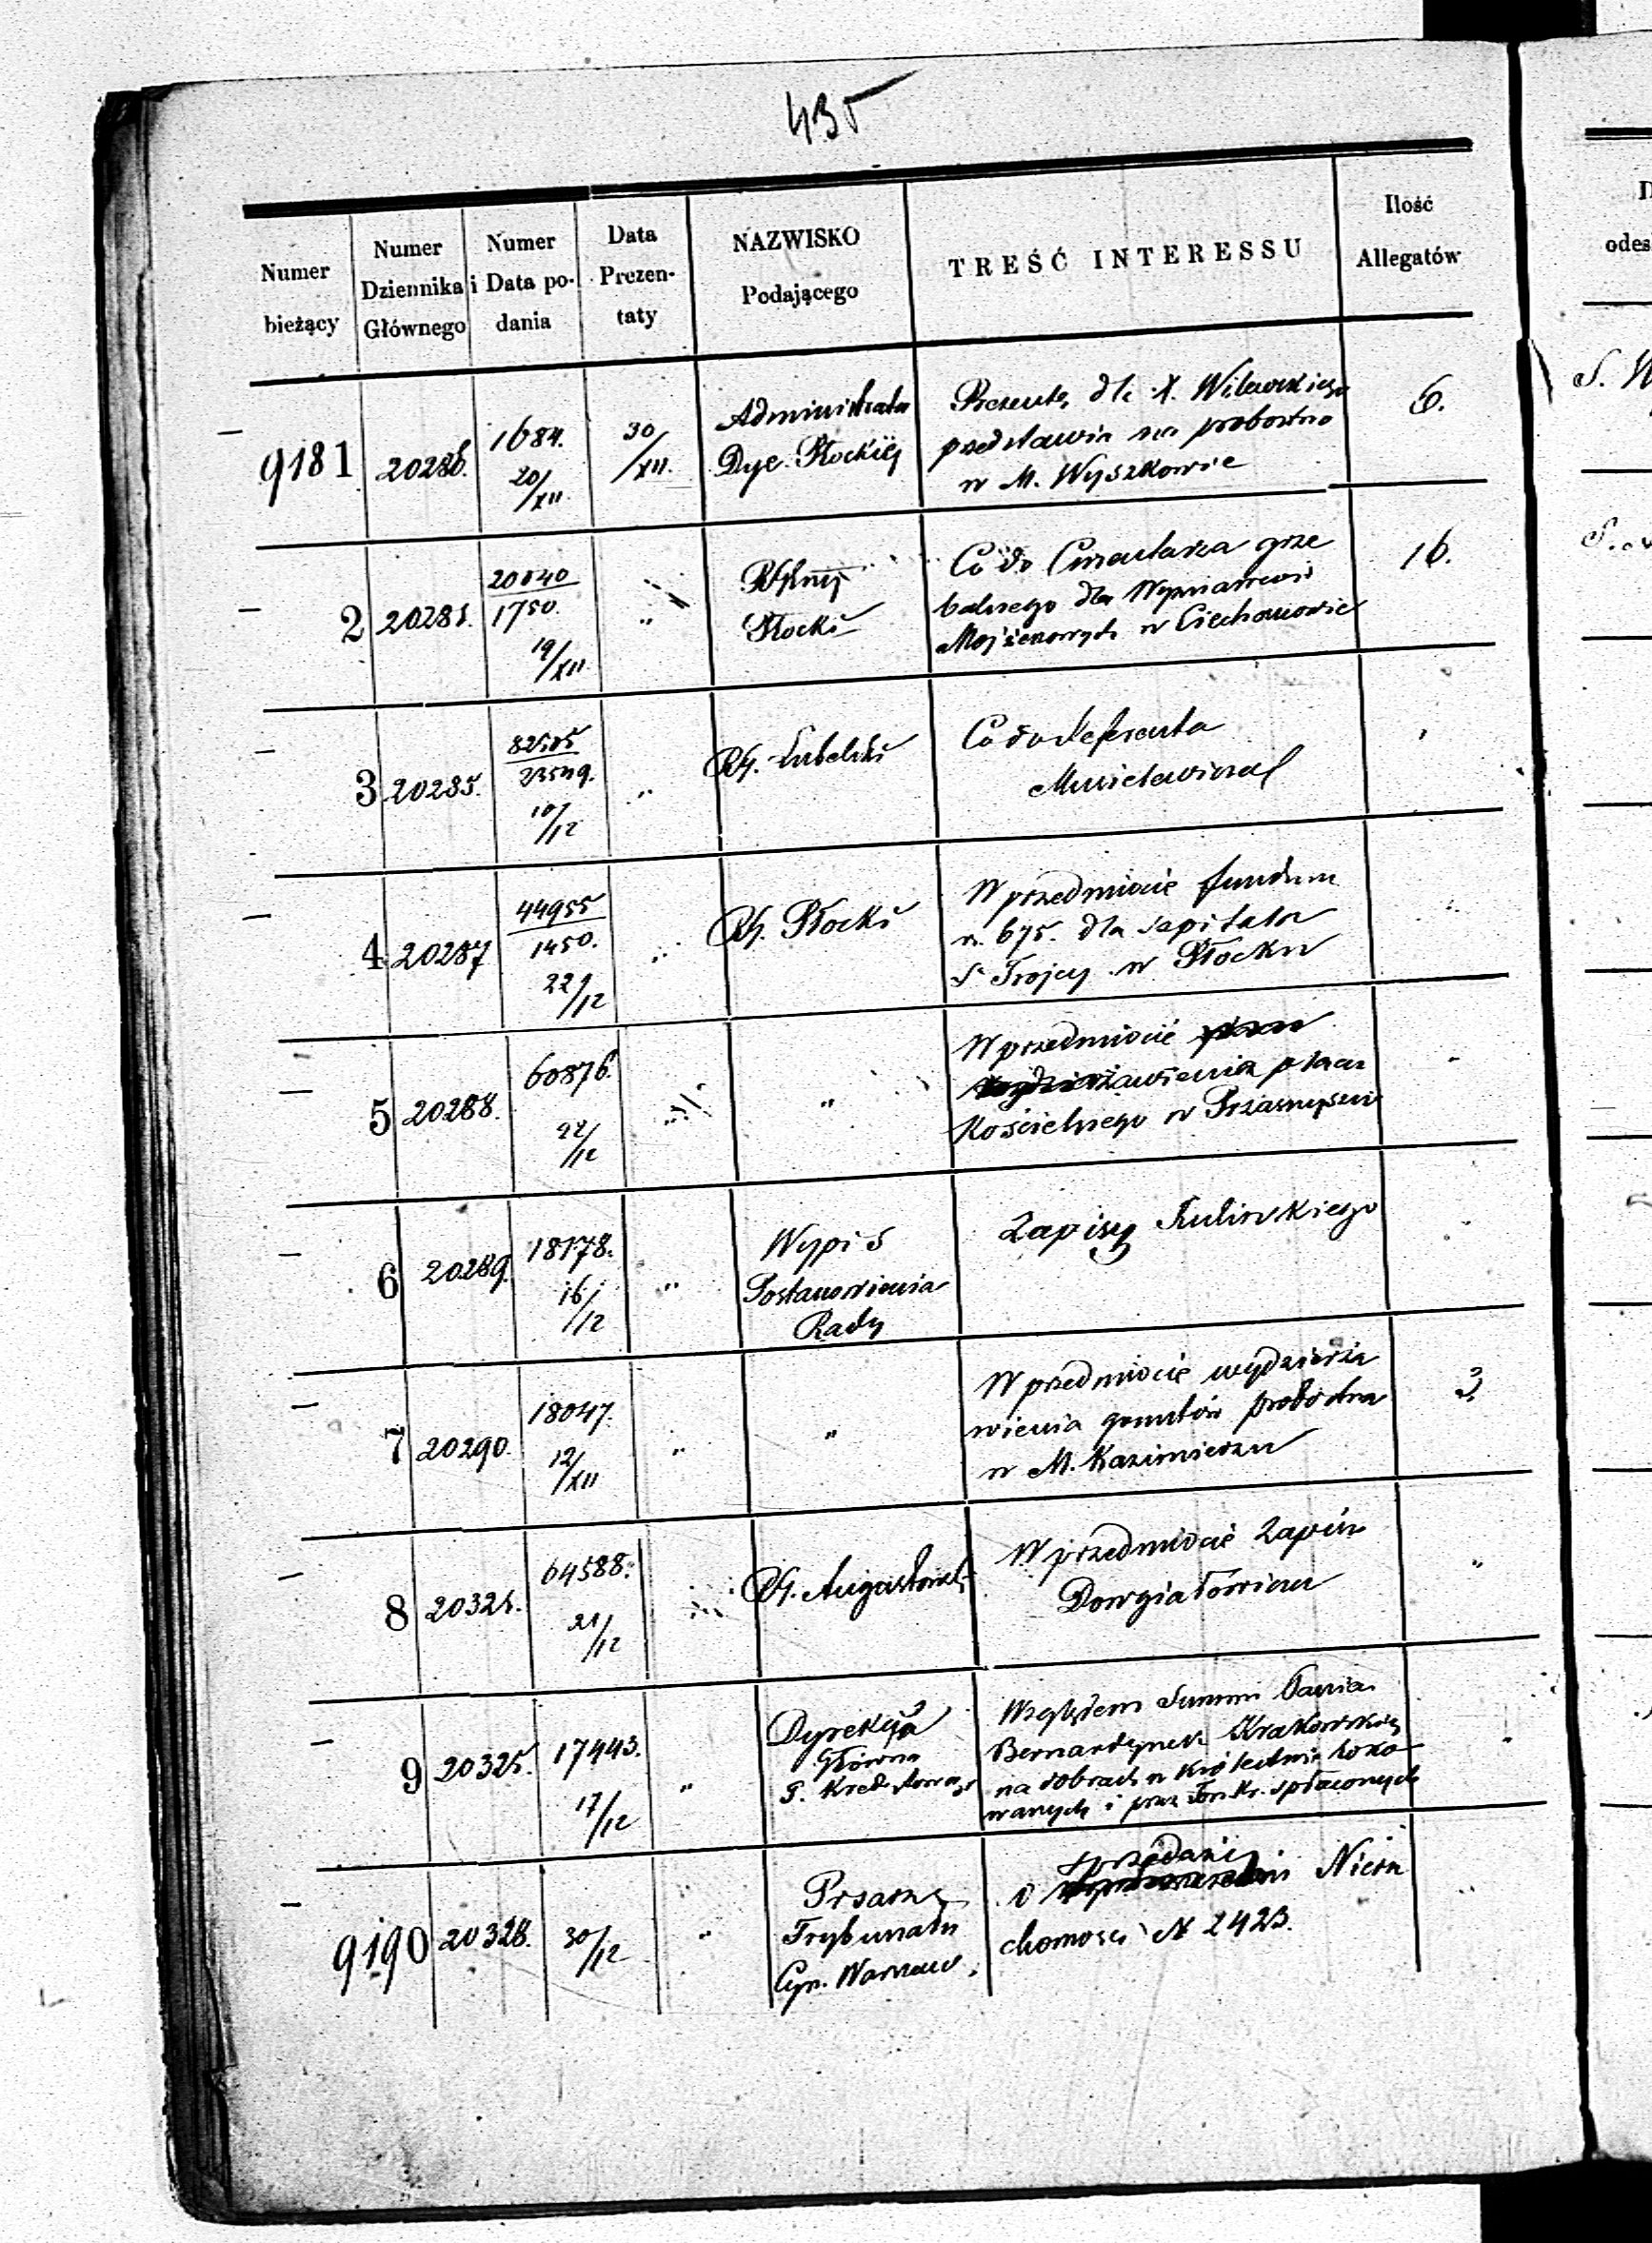 435
Numer bieżący
Numer Dziennika Głównego
Numer i Data podania
Data Prezentaty
NAZWISKO Podającego
TREŚĆ INTERESSU
Ilość Allegatów
9181 20286. 1684. 20/XII 30/XII. Administrator Dye. Płockiej
Prezentę dla X.
przedstawia na probostwo
w M. Wyszkowie
6.
2 20281. 20040/1750. 19/XII " Płocki
Co do Cmentarza grze
balnego dla Wyznawców
Mojżeszowych w Ciechanowie
16.
3 20285. 23549. 10/12 " RG. Lubelski
Co do Referenta
4 20287 44955/1450. 22/12 " RG. Płocki
W przedmiocie funduszu
rs. 675. dla szpitala
S. Trojcy w Płocku
5 20288. 60876. 22/12 "
W przedmiocie
placu
Kościelnego w Przasnyszu
6 20289. 18178. 16/12 " Wypis
Postanowienia
Rady
Zapisy Rulinskiego
7 20290. 18047. 12/XII " "
W przedmiocie wydzierża
wienia gruntów probostwa
w M. Kazimierzu
3
8 20321. 64588. 21/12 RG. Augustowski
W przedmiocie Zapisu
"
9 20325. 17443. 17/12 " Dyrekcja
Główna
T. Kred.
Względem Summ
Bernardynek Krakowskich
na dobrach w Królestwie loko
wanych i przez Tow. Kr. spłaconych
9190 20328. 30/12 " Pisarz
Trybunału
Cyw. Warszaw.
O sprzedaży Nieru
chomości N 2423.